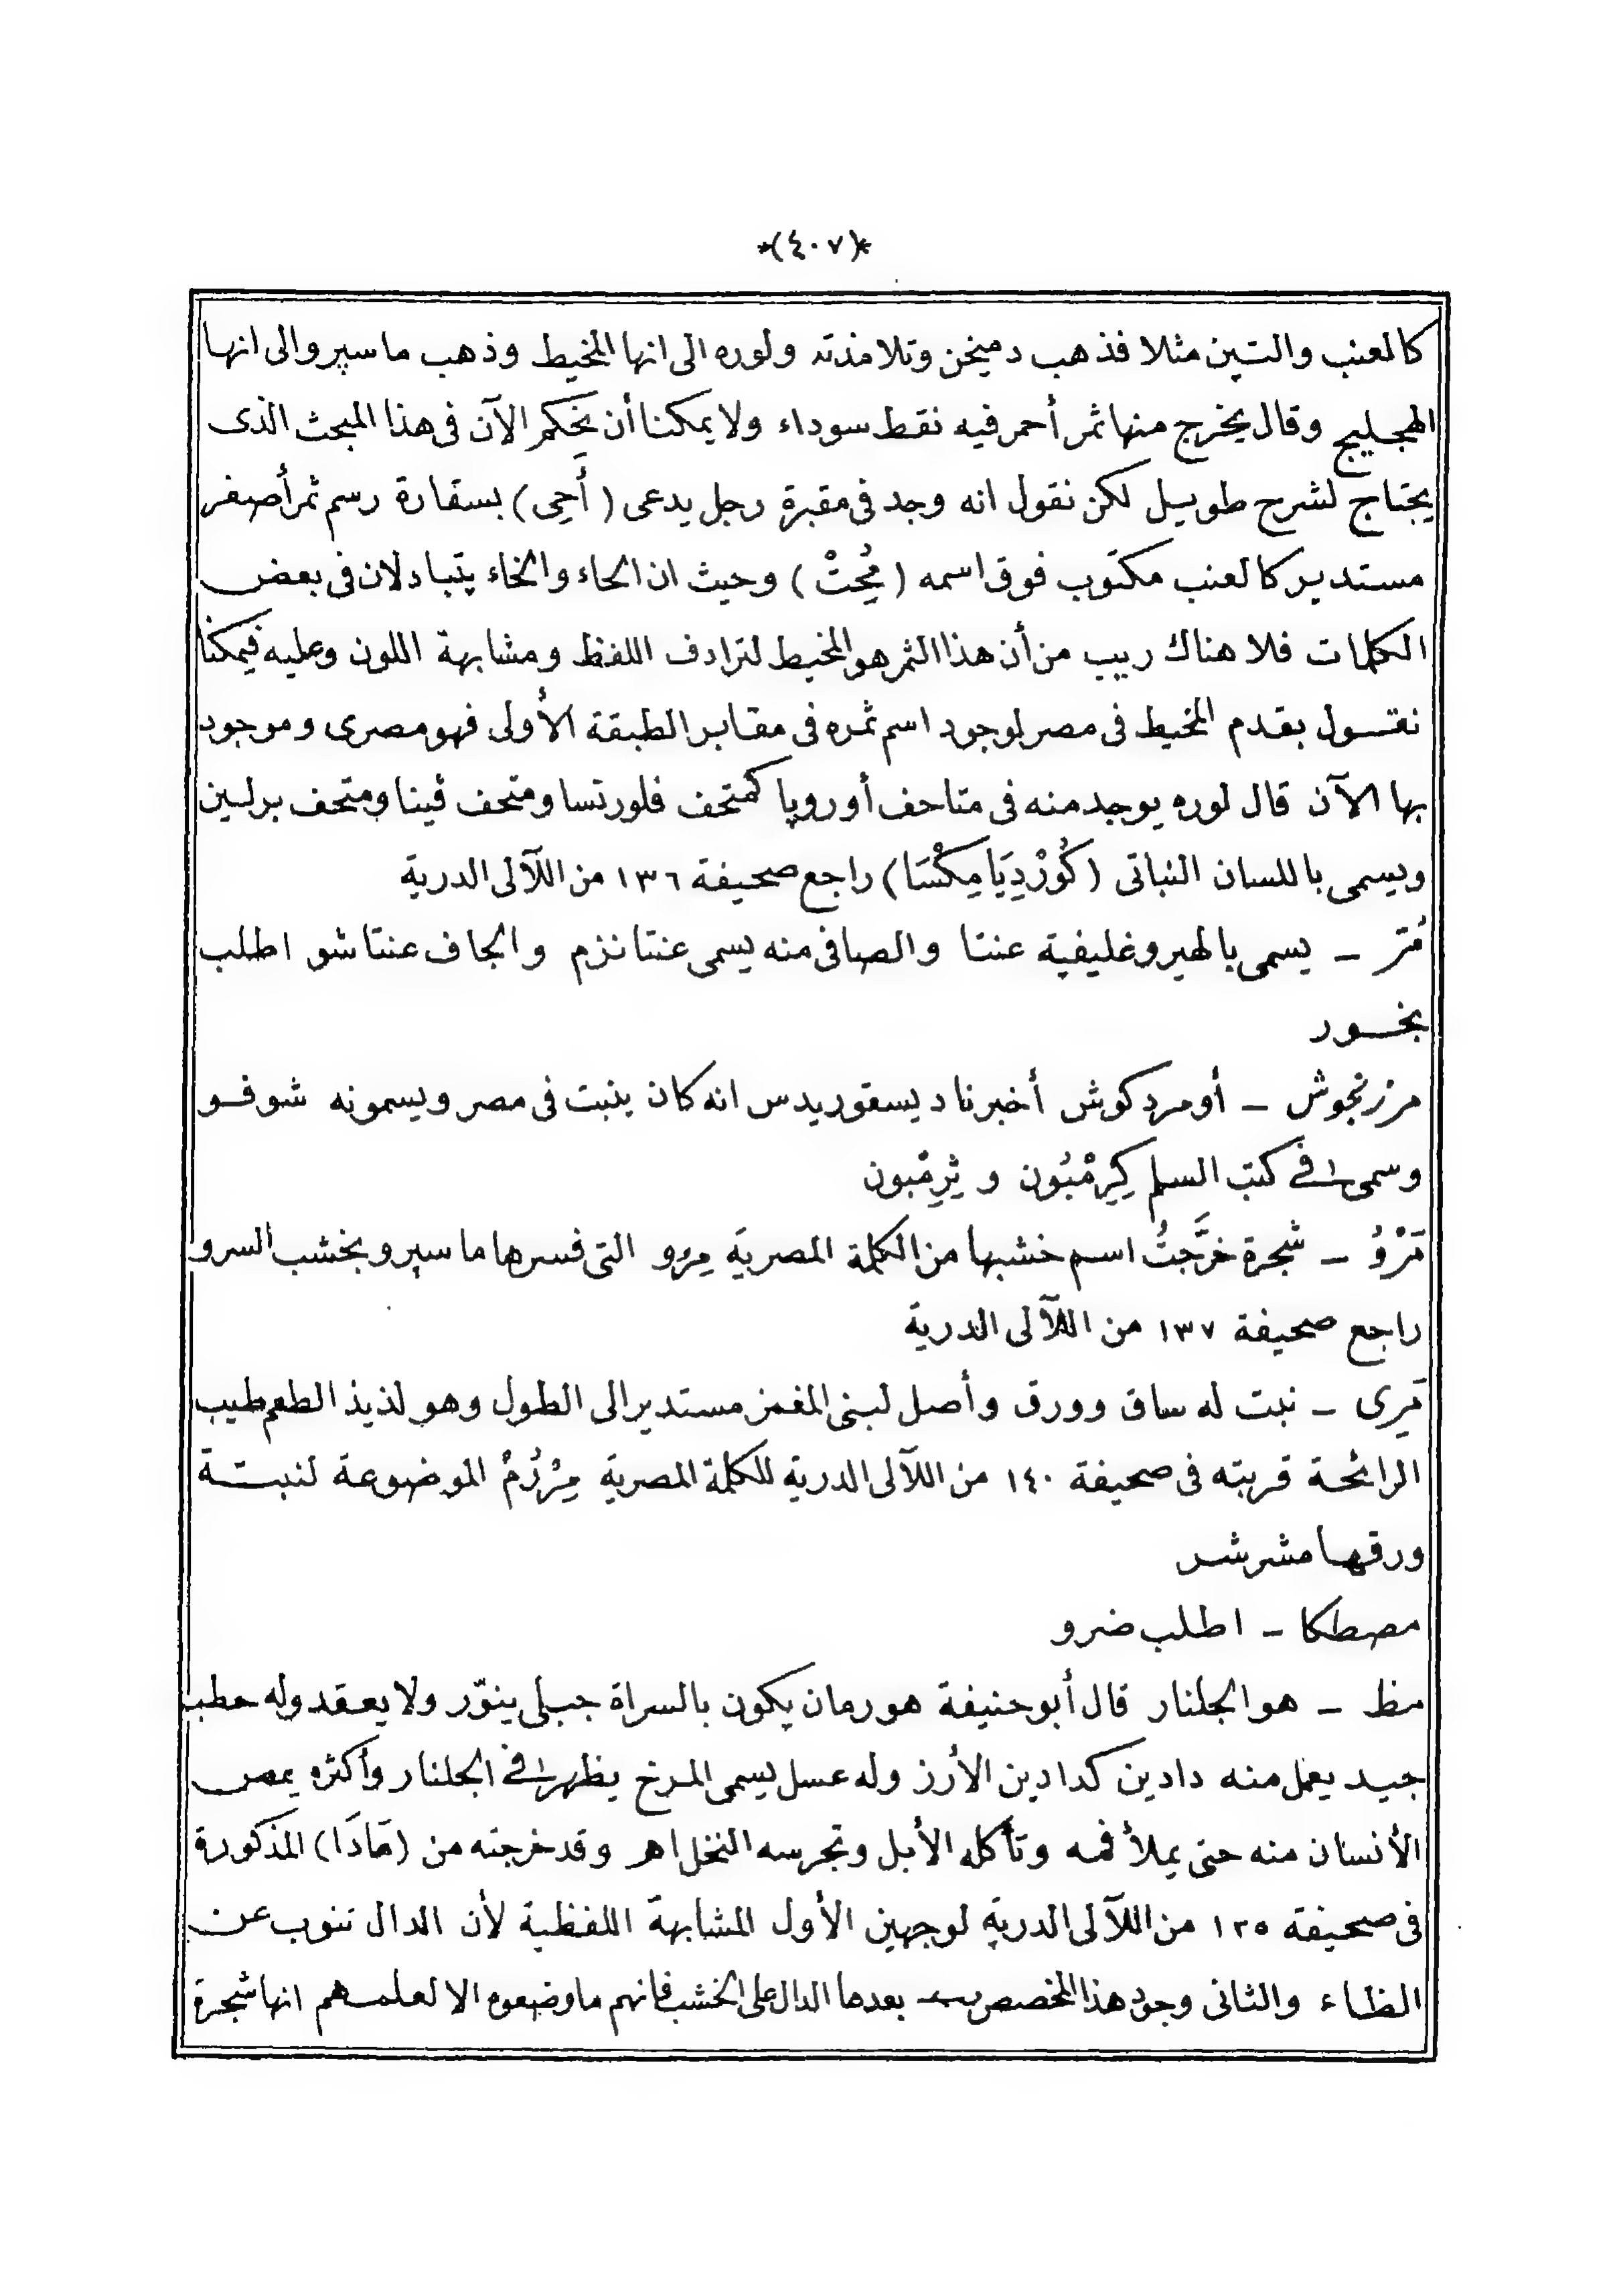 *(٤٠٧)*
كالعنب والتين مثلا فذهب دميخن وتلامذته ولوره الى انها المخيط وذهب ماسپرو الى انها
الهجليج وقال يخرج منها ثمر أحمر فيه نقط سوداء ولا يمكننا أن نحكم الآن فى هذا المبحث الذى
يحتاج لشرح طويل لكن نقول انه وجد فى مقبرة رجل يدعى (أَحِى) بسقارة رسم ثمر أصفر
مستدير كالعنب مكتوب فوق اسمه (مُحِتْ) وحيث ان الحاء والخاء يتبادلان فى بعض
الكلمات فلا هناك ريب من أن هذا الثمر هو المخيط لترادف اللفظ ومشابهة اللون وعليه فيمكننا
نقول بقدم المخيط فى مصر لوجود اسم ثمره فى مقابر الطبقة الأولى فهو مصرى وموجود
بها الآن قال لوره يوجد منه فى متاحف أوروپا كمتحف فلورنسا ومتحف ڤينا ومتحف برلين
ويسمى باللسان النباتى (كُورْدِيَا مِكْسَا) راجع صحيفة ١٣٦ من اللآلى الدرية
مُرّ – يسمى بالهيروغليفية عنتا والصافى منه يسمى عنتانزم والجاف عنتاشو اطلب
بخور
مرزنجوش – أو مردكوش أخبرنا ديسقوريدس انه كان ينبت فى مصر ويسمونه شوفو
وسمى فى كتب السلم كِيرِمْبُون و ثِرِمْبون
مَرْوُ – شجرة خرَّجتُ اسم خشبها من الكلمة المصرية مِرْو التى فسرها ماسپرو بخشب السرو
راجع صحيفة ١٣٧ من اللآلى الدرية
مَرِى – نبت له ساق وورق وأصل لبنى المغمز مستدير الى الطول وهو لذيذ الطعم طيب
الرائحة قربته فى صحيفة ١٤٠ من اللآلى الدرية للكلمة المصرية مِرْرُمْ الموضوعة لنبتة
ورقها مشرشر
مصطكا – اطلب ضرو
مظ – هو الجلنار قال أبو حنيفة هو رمان يكون بالسراة جبلى ينوّر ولا يعقد وله حطب
جيد يعمل منه دادين كدادين الأرز وله عسل يسمى المرخ يظهر فى الجلنار وأكثره يمص
الأنسان منه حتى يملأ فمه وتأكله الأبل وتجرسه النخل اهر وقد خرجته من (مَادَا) المذكورة
فى صحيفة ١٣٥ من اللآلى الدرية لوجهين الأول المشابهة اللفظية لأن الدال تنوب عن
الظاء والثانى وجود هذا المخصص بعدها الدال على الخشب فانهم ما وضعوه الا لعلمهم انها شجرة